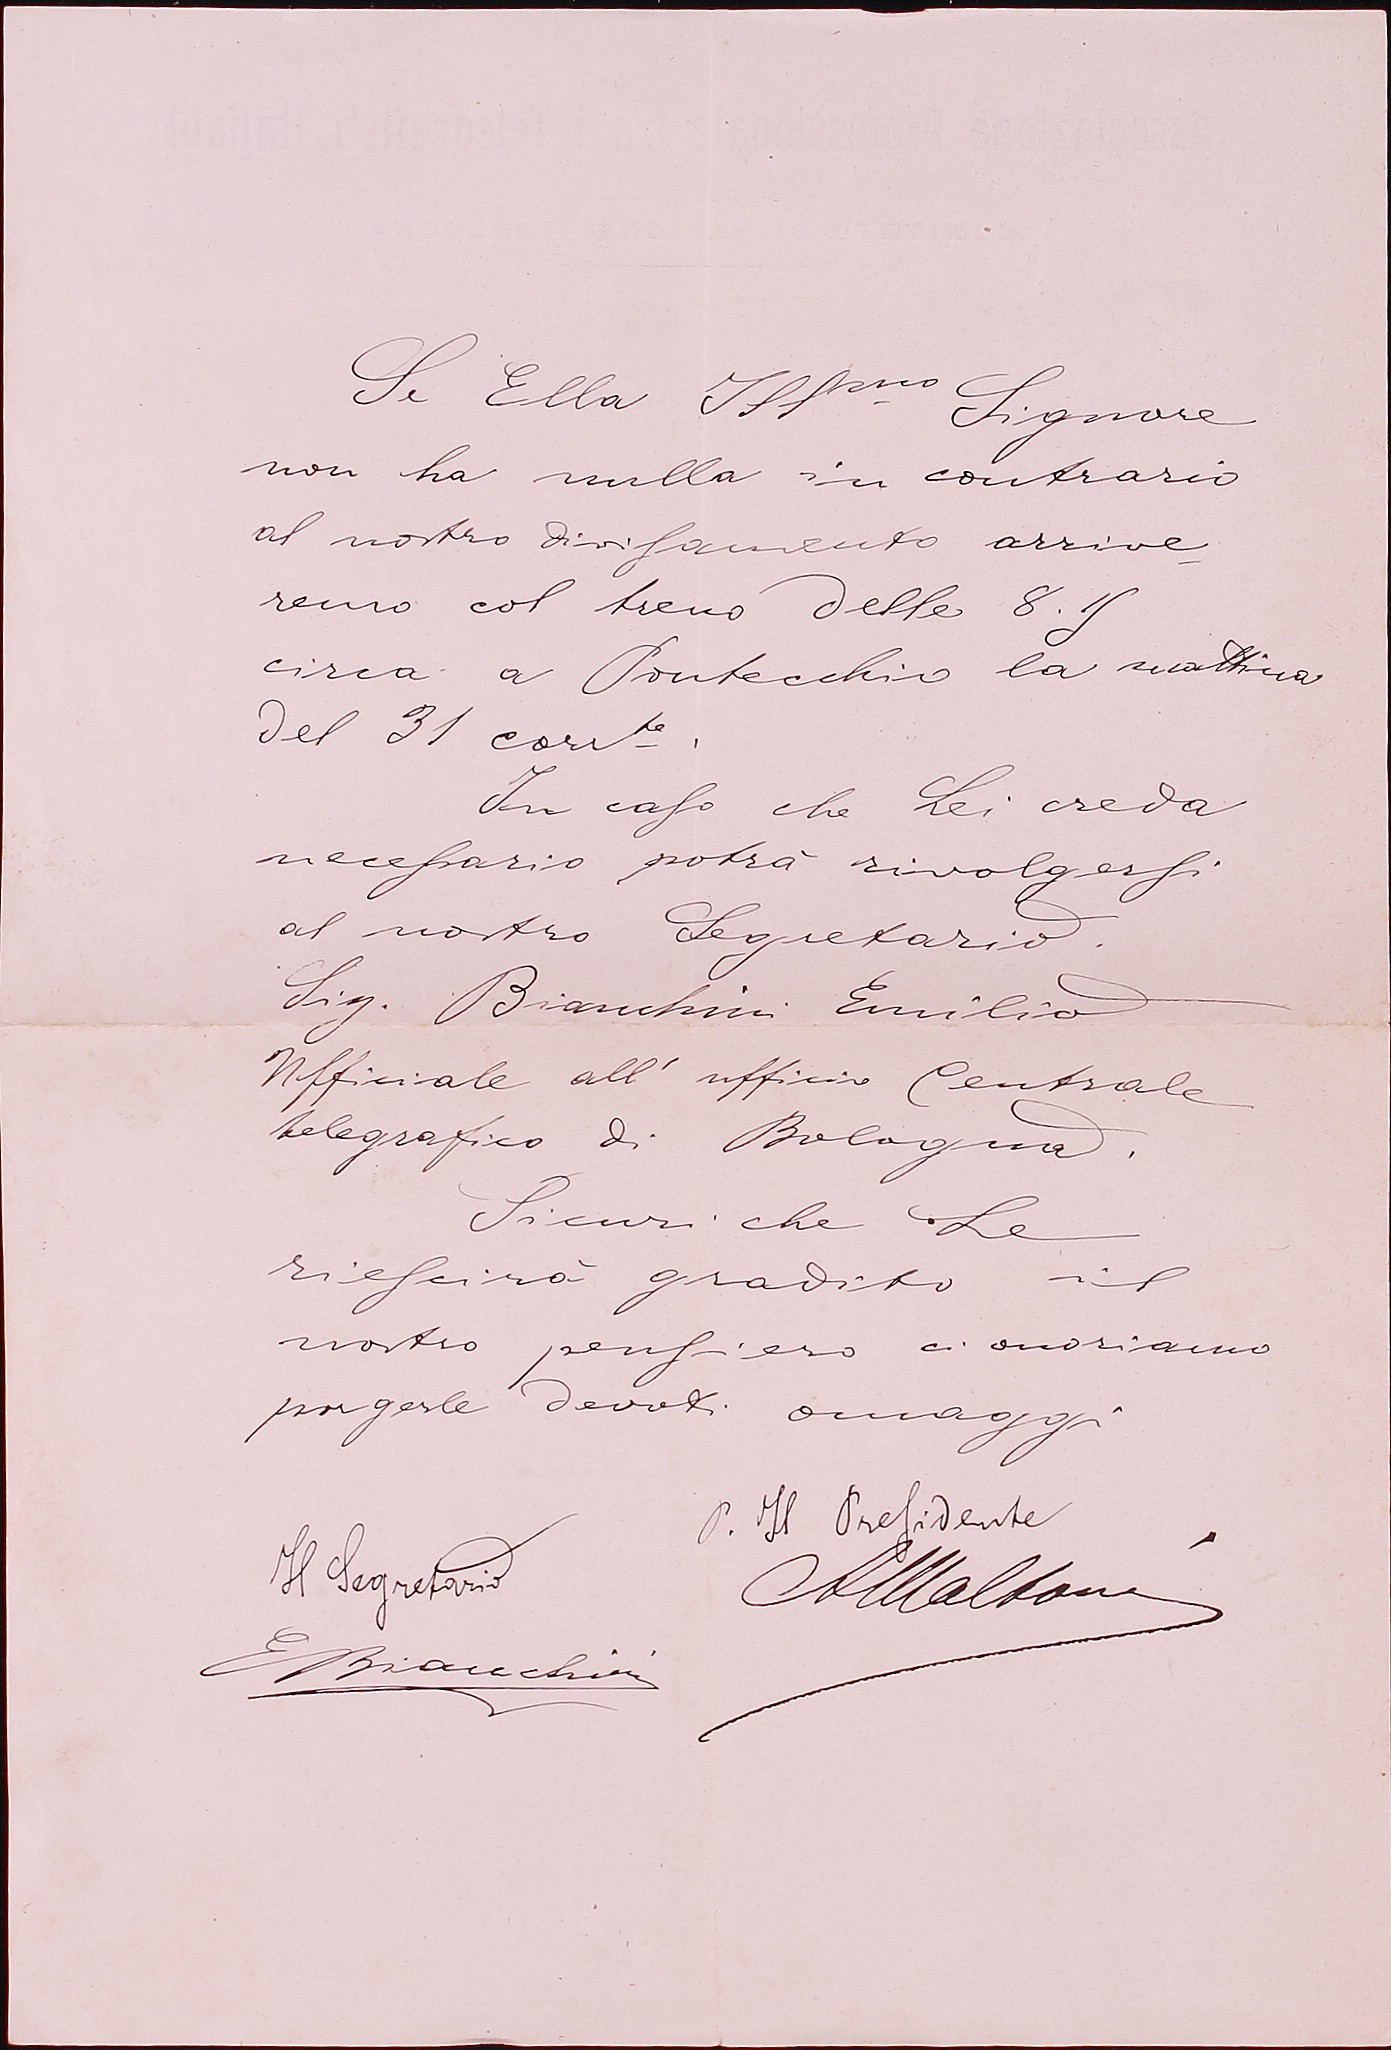 Se Ella Ill.mo Signore
non ha nulla in contrario
al nostro divisamento arrive-
remo col treno delle 8.15
circa a Pontecchio la mattina
del 31 corr.te.
In caso che Lei creda
necessario potrà rivolgersi
al nostro Segretario.
Sig. Bianchini Emilio
Ufficiale all' ufficio Centrale
telegrafico di Bologna.
Sicuri che Le
riescirà gradito il
nostro pensiero ci onoriamo
porgerle devoti omaggi
P. Il Presidente
AMaltoni
Il Segretario
E Bianchini